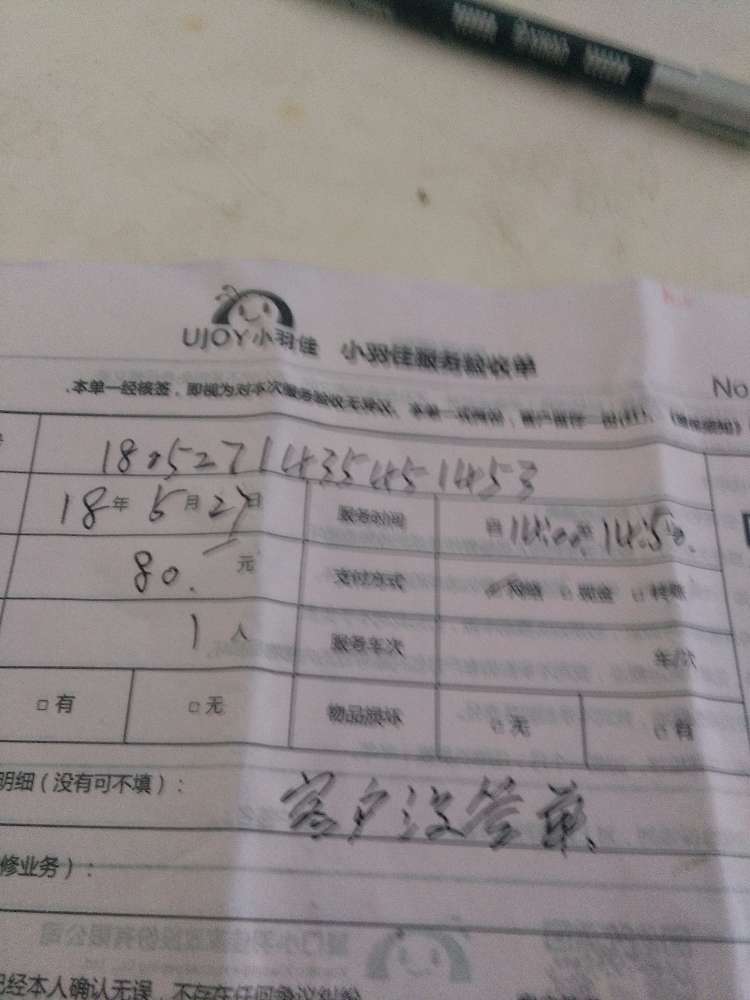 UJOY小羽佳 小羽佳服务验收单
No
本单一经核签，即视为对本次服务验收无异议、本单一式两份，客户留存一份
1805271435451453
18年5月27日 服务时间 自14:00至14:50.
80.元 支付方式 网络 □现金 □转账
1人 服务车次 车/次
□有 □无 物品损坏 □无 □有
明细（没有可不填）： 客户没签单、
修业务）：
已经本人确认无误，不存在任何争议纠纷